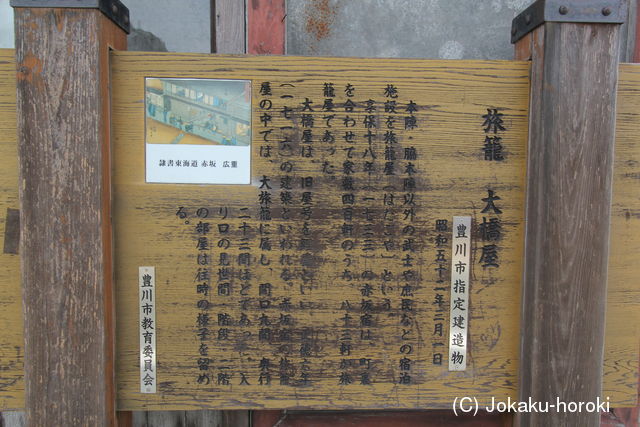 旅籠 大橋屋
豊川市指定建造物
昭和五十一年三月一日
本陣、脇本陣以外の武士や庶民などの宿泊
施設を旅籠屋(はたごや)という。
享保十八年(一七三三)の赤坂宿は、町裏
を合わせて家数四百軒のうち、八十三軒が旅
籠屋であった。
大橋屋は、旧屋号を
(一七一六)の建築といわれる。赤坂宿の旅籠
屋の中では、大旅籠に属し、間口九間、奥行
二十三間ほどであ
り口の見世間、階段、二階
の部屋は往時の様子を留め
る。
豊川市教育委員会
隷書東海道 赤坂 広重
(C) Jokaku-horoki